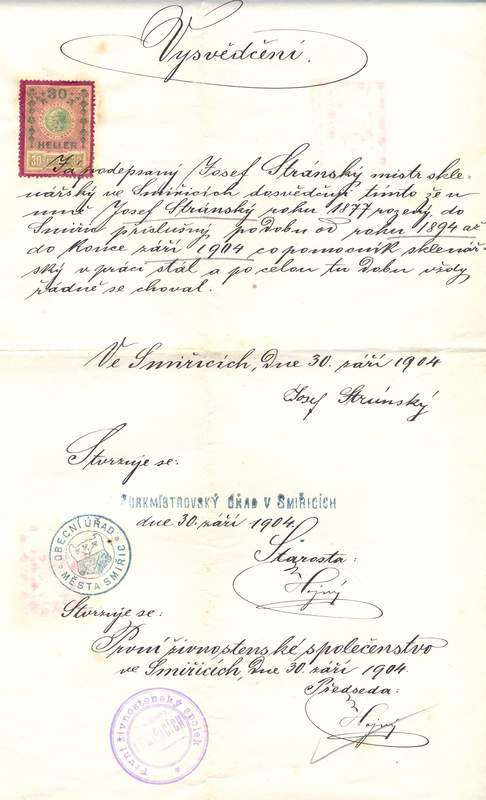 Vysvědčení.
30
HELLER
30
Já podepsaný Josef Stránský mistr skle-
nářský ve Smiřicích dosvědčuji tímto že u
mně Josef Stránský roku 1877 rozený, do
Smiřic příslušný po dobu od roku 1894 až
do konce září 1904 co pomocník sklenář-
ský v práci stál a po celou tu dobu vždy
řádně se choval.
Ve Smiřicích, dne 30. září 1904
Josef Stránský
Stvrzuje se:
PURKMISTROVSKÝ ÚŘAD V SMIŘICÍCH
dne 30. září 1904.
OBECNÍ ÚŘAD
MĚSTA SMIŘIC
Starosta:
Hojný
Stvrzuje se:
První živnostenské společenstvo
ve Smiřicích, dne 30. září 1904.
Předseda:
Hojný
První živnostenský spolek